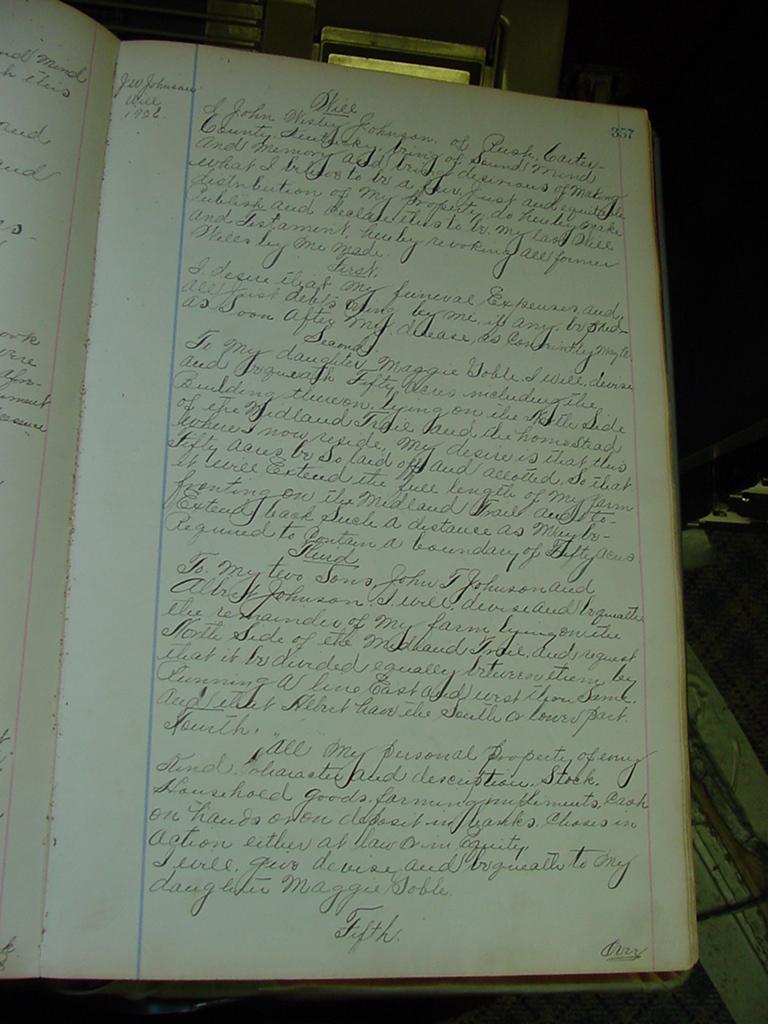 357
J W Johnson
Will
1926
Will
I John Wesley Johnson, of Rush, Carter
County, Kentucky, being of Sound Mind
and Memory and being desirious of Making
what I believe to be a fair, Just and equitable
distribution of my Property, do hereby make
Publish and declare this to be my last Will
and Testament, hereby revoking all former
Wills by me made.
First.
I desire that my funeral Expenses and
all Just debts owing by me, if any, be Paid
as soon after my disease, as
Second
To My daughter, Maggie Goble, I will, devise
and bequeath Fifty acres including the
Building thereon, lying on the North Side
of the Midland Trail and the homestead
where I now reside, My desire is that this
Fifty acres be so laid off and allotted, so that
it will Extend the full length of my farm
fronting on the Midland Trail and to
Extend back Such a distance as May be
Required to Contain a boundary of Fifty acres
Third
To. My two Sons, John T Johnson and
Albert Johnson. I will, devise and bequeath
the remainder of my farm lying on the
North Side of the Midland Trail, and request
that it be divided equally between them by
Running a line East and west thru Same.
and that Albert have the South or lower part.
Fourth.
All My personal Property of every
Kind Character and description. Stock.
Household goods, farming impliments, Cash
on hands or on deposit in banks. Choses in
action either at law or in Equity.
I will, give devise and bequeath to My
daughter Maggie Goble.
Fifth.
Over
nd mind
h this
and
and
ork
ere